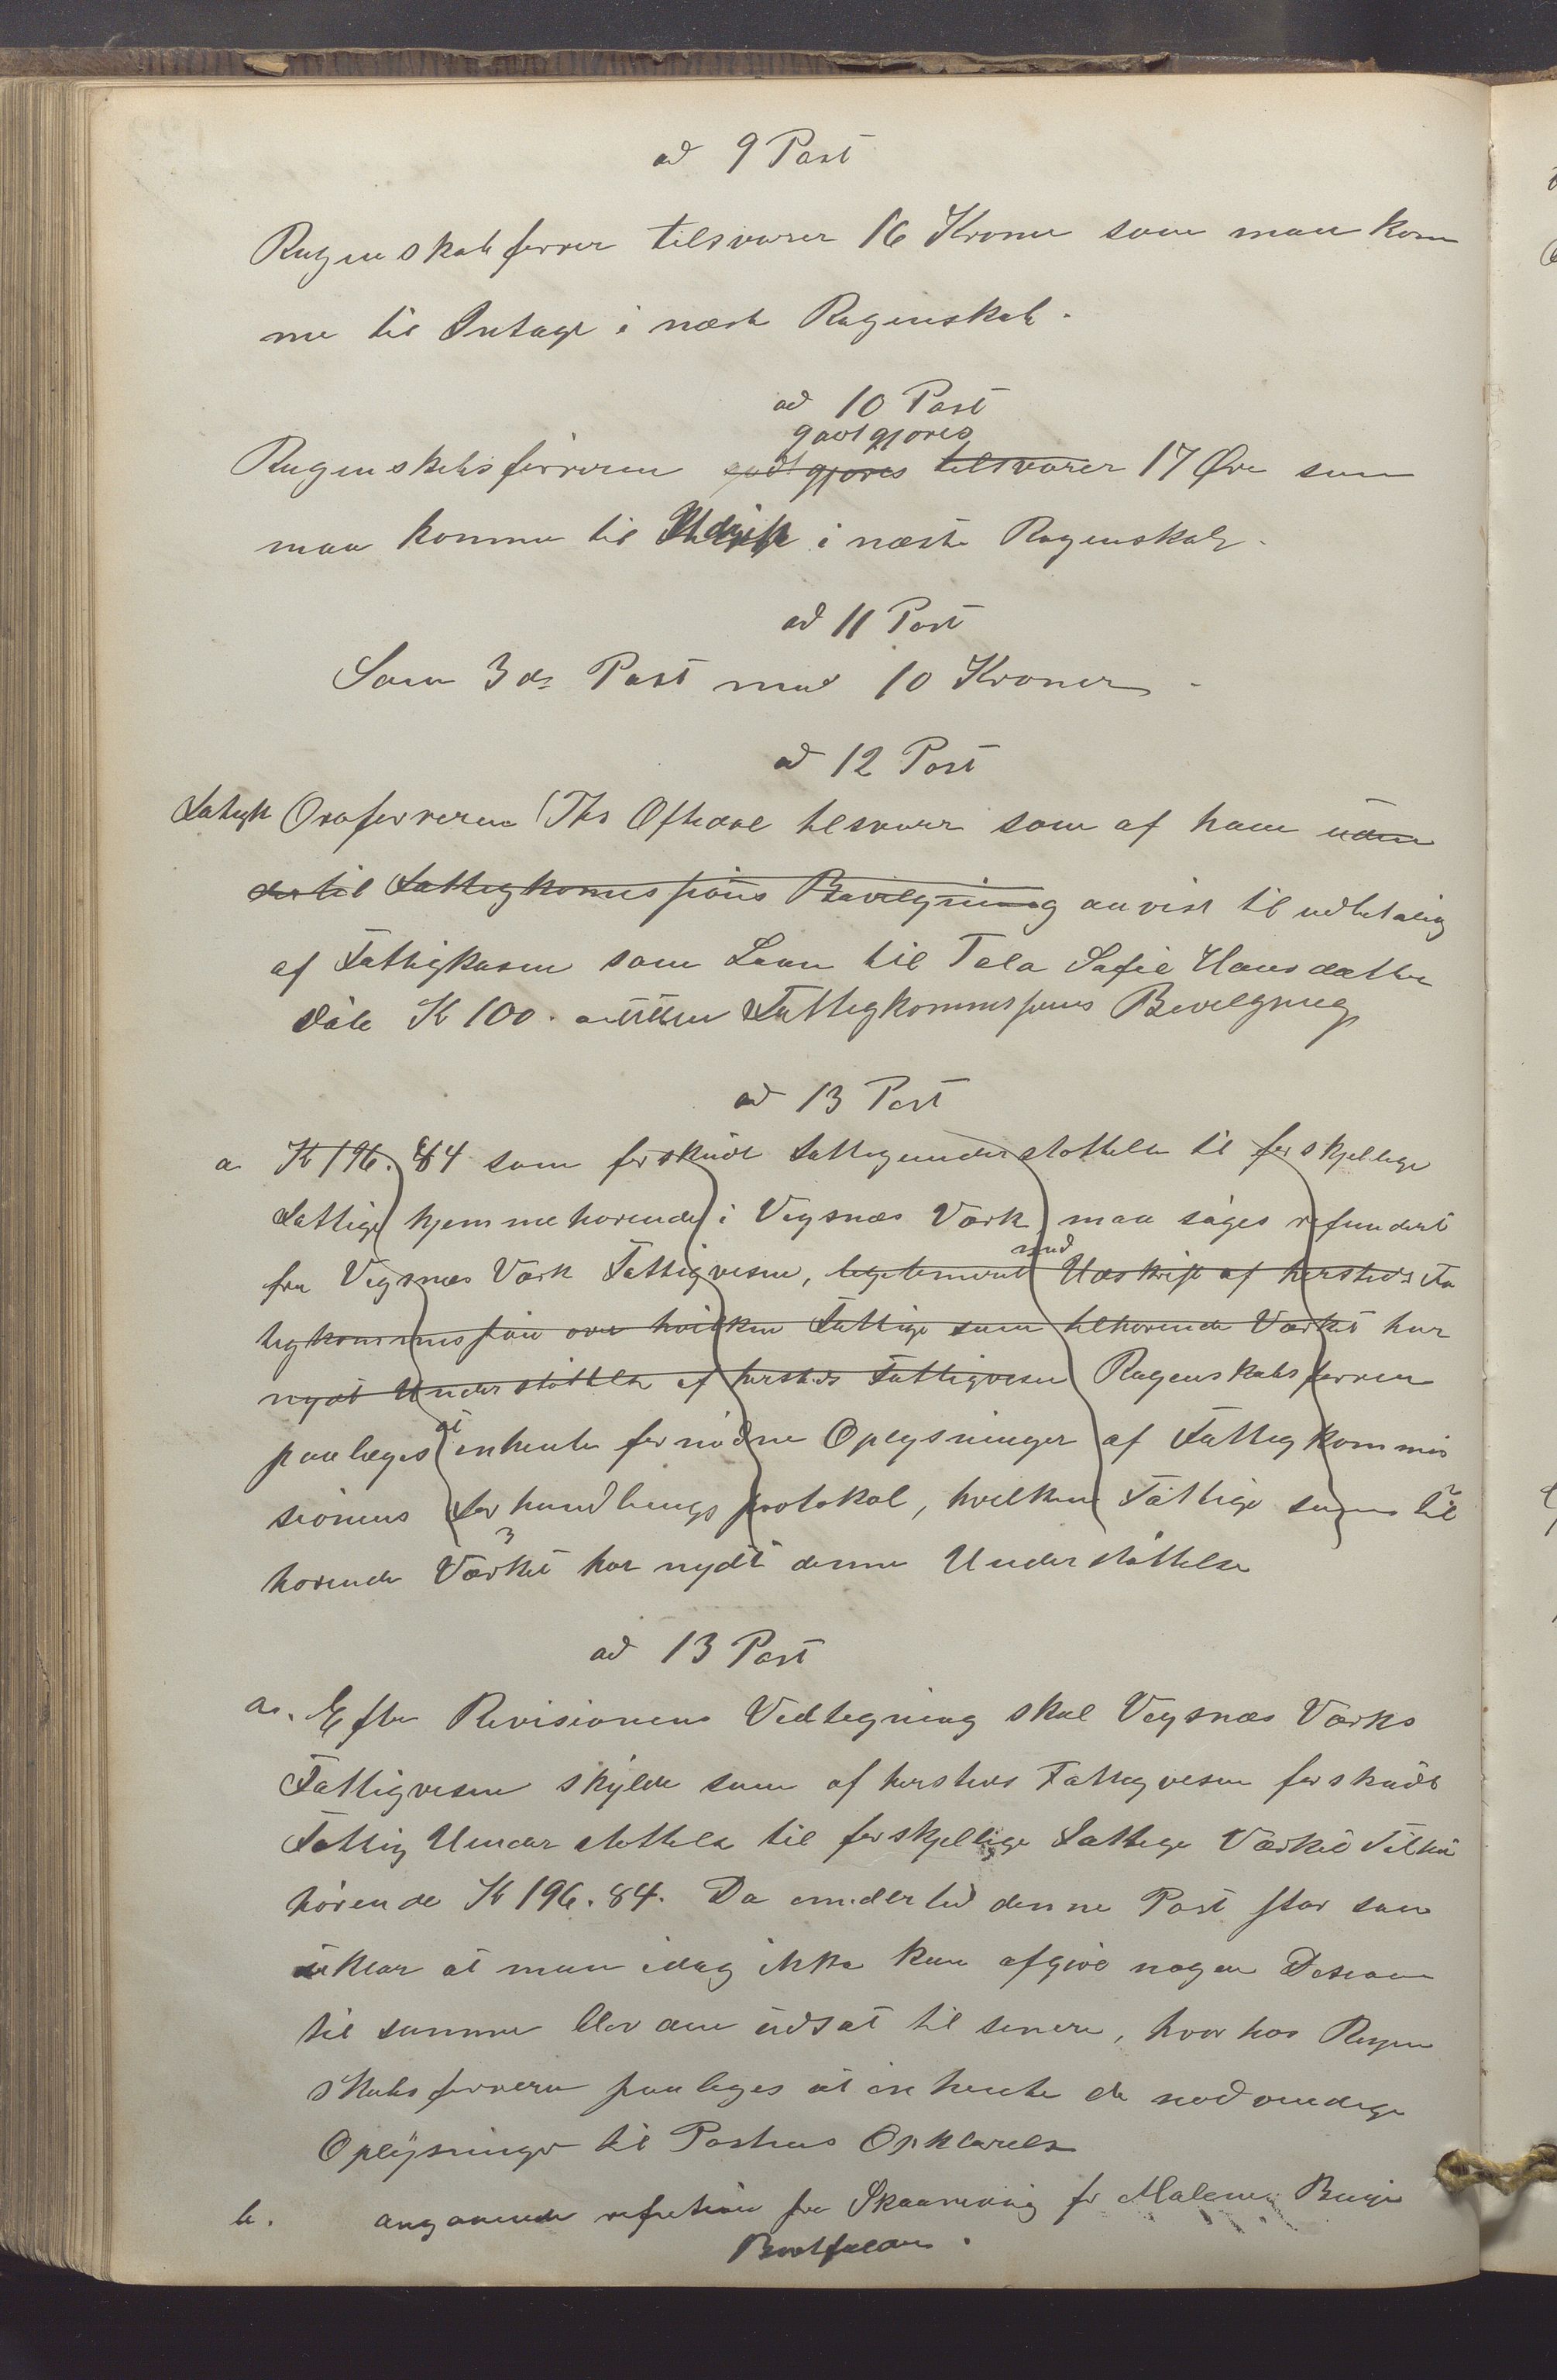 ad 9 Post
Regnskabsfører tilsvarer 16 Kroner som maa kom
me til Indtægt i næste Regnskab.
ad 10 Post
godtgjøres
Regnskabsføreren godtgjøres tilsvarer 17 Øre som
maa komme til Udgift i næste Regnskab.
ad 11 Post
Som 3die Post med 10 Kroner
ad 12 Post
Fattigk Ordføreren Ths Oftedal tilsvarer som af ham uden
dertil Fattigkommissions Bevilgning anvist til udbetaling
af Fattigkassen som Laan til Tala Sofie Hansdatter
K 100. uden Fattigkommissions Bevilgning
ad 13 Post
a Kr 196.84 som forskudt Fattigunderstøttelse til forskjellige
Fattige hjemmehørende i Vigsnæs Værk maa søges refunderet
fra Vigsnæs Værk Fattigvesen, legitimeret med Udskrift af hersteds Fat
tigkommission over hvilken Fattige som tilhørende Værket har
nydt Understøttelse af hersteds Fattigvesen Regenskabsføreren
paalæges at indhente fornødne Oplysninger af Fattigkommis
sionens Forhandlingsprotokol, hvilken Fattige som til
hørende Værket har nydt denne Understøttelse
ad 13 Post
a. Efter Revisionens Vedtegning skal Vigsnæs Værks
Fattigvesen skylde som af hersteds Fattigvesen forskudt
Fattig Understøttelse til forskjellige Fattige Værket Tilhø
hørende K 196.84. Da emidlertid denne Post staar saa
uklar at man idag ikke kan afgive nogen Desion
til samme blev den udsat til senere, hvorhos Regen
skabsføreren paalæges at indhente de nødvendige
Oplysninger til Postens Opklarelse
b. angaaende refution fra Skaanevig for Malene Børge